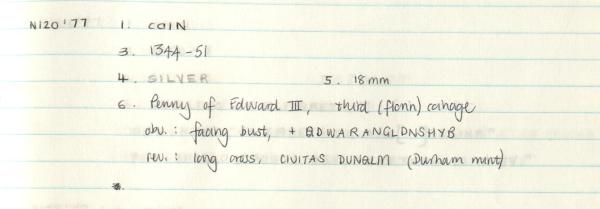 N120 '77 1. COIN
3. 1344-51
4. SILVER 5. 18mm
6. Penny of Edward III, third (florin) coinage
obv.: facing bust, + EDWARANGLDNSHYB
rev.: long cross, CIVITAS DUNELM (Durham mint)